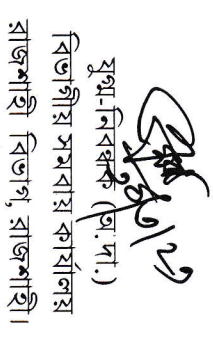 যুগ্ম-নিবন্ধক (অ.দা.)
বিভাগীয় সমবায় কার্যালয়
রাজশাহী বিভাগ, রাজশাহী।